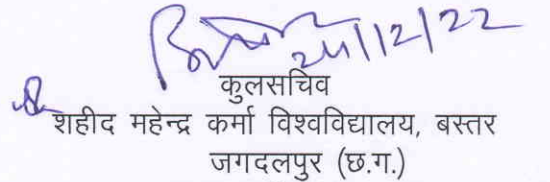 24/12/22
कुलसचिव
शहीद महेन्द्र कर्मा विश्वविद्यालय, बस्तर
जगदलपुर (छ.ग.)